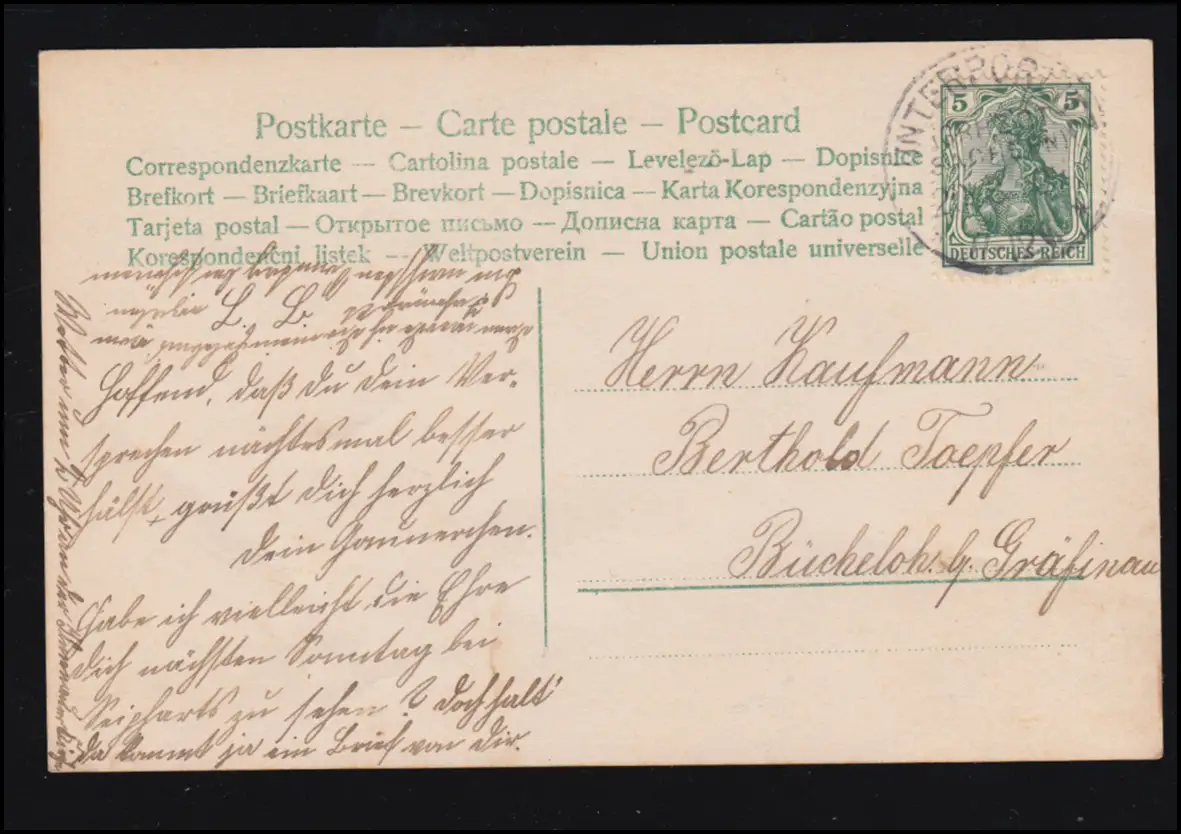 Postkarte – Carte postale – Postcard
Correspondenzkarte — Cartolina postale — Levelező-Lap — Dopisnice
Brefkort — Briefkaart — Brevkort — Dopisnica — Karta Korespondenzyjna
Tarjeta postal — Открытое письмо — Дописна карта — Cartão postal
Korespondenčni listek — Weltpostverein — Union postale universelle
5 5
DEUTSCHES REICH
Herrn Kaufmann
Berthold Toepfer
Bücheloh b. Gräfinau
L. B.
Hoffend, daß du dein Ver-
sprechen nächtesmal besser
hälst, grüßt dich herzlich
dein Gaunerchen.
Habe ich vielleicht die Ehre
dich nächsten Sonntag bei
Seipharts zu sehen? Doch halt'
da kommt ja ein Brief von dir.